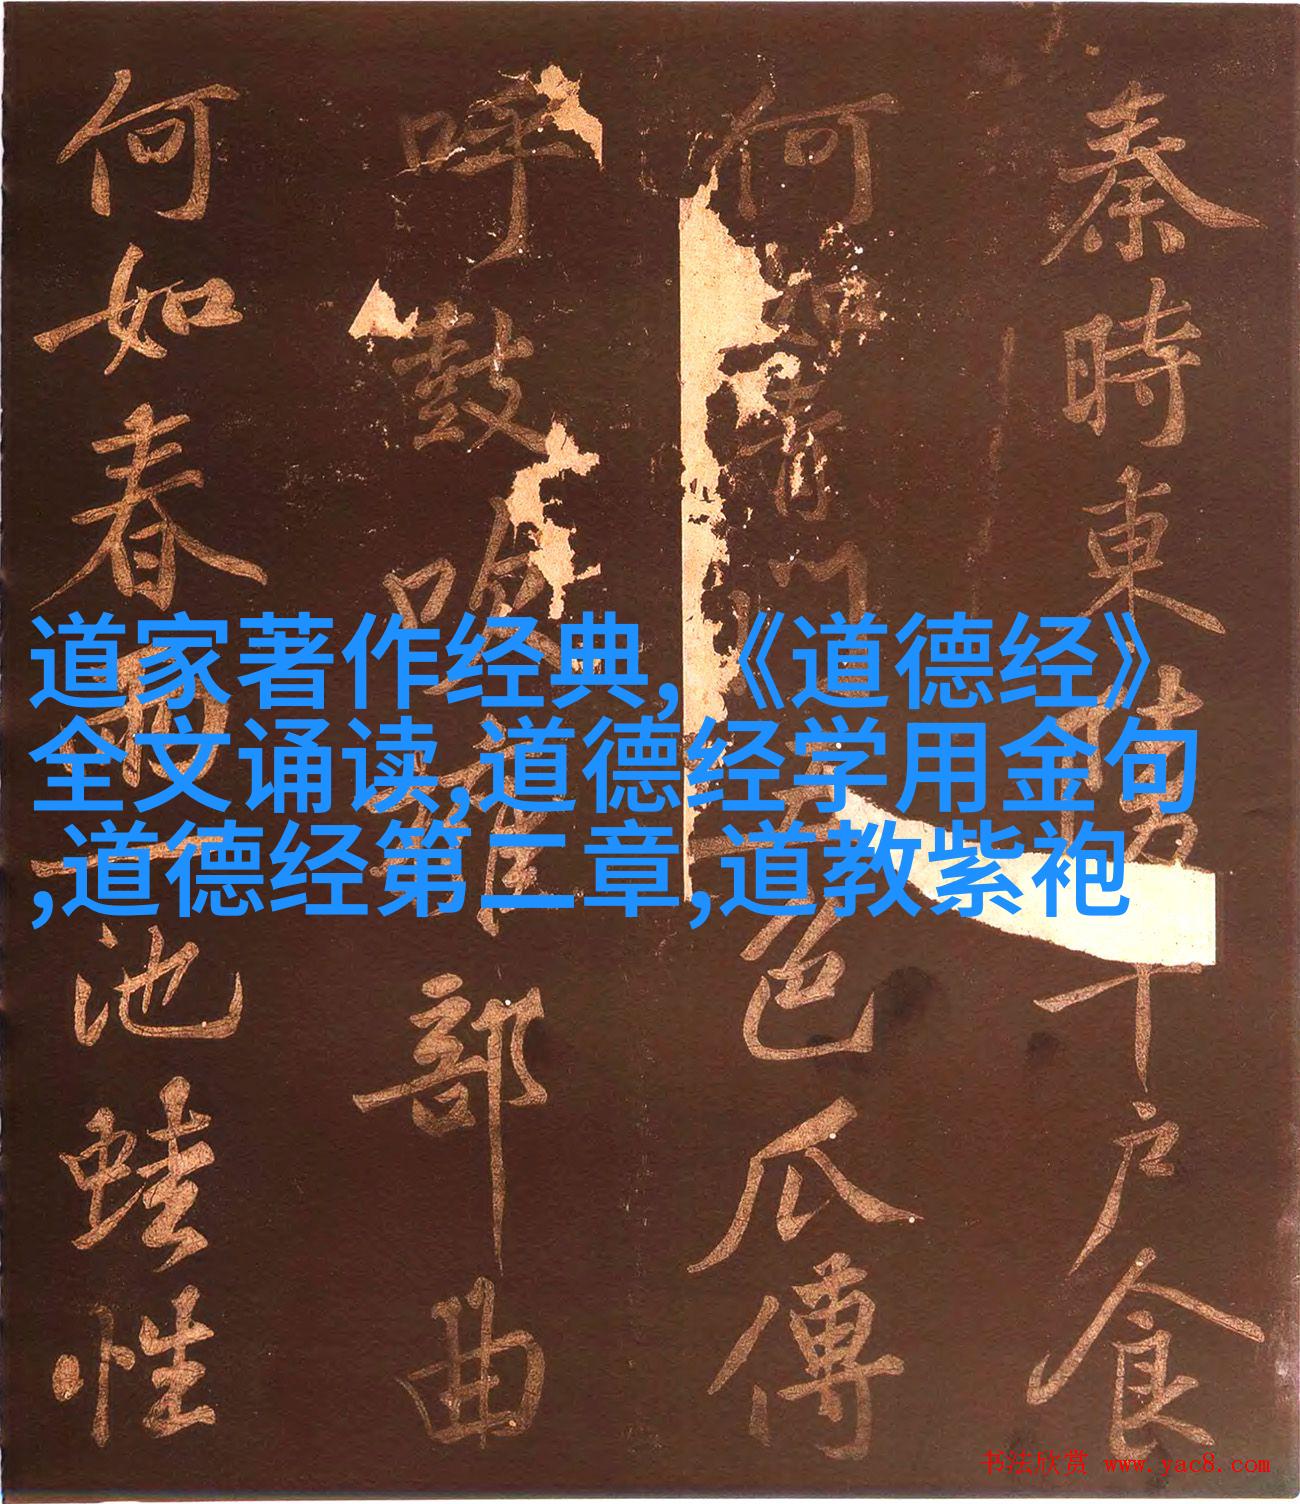 秦時東陵千戶食
何如青門五色瓜傳
呼鼓吹雜部曲
何如春雨一池蛙性
道家著作经典,《道德经》
全文诵读,道德经学用金句
,道德经第二章,道教紫袍
书法欣赏 www.yac8.com